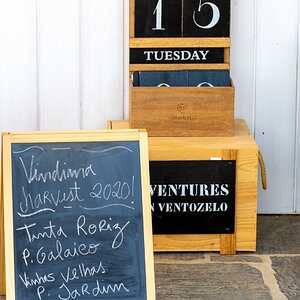 15
TUESDAY
VENTOZELO
VENTURES
N VENTOZELO
Vindima
Harvest 2020!
Tinta Roriz
P. Galaico
Vinhas Velhas
P. Jardim